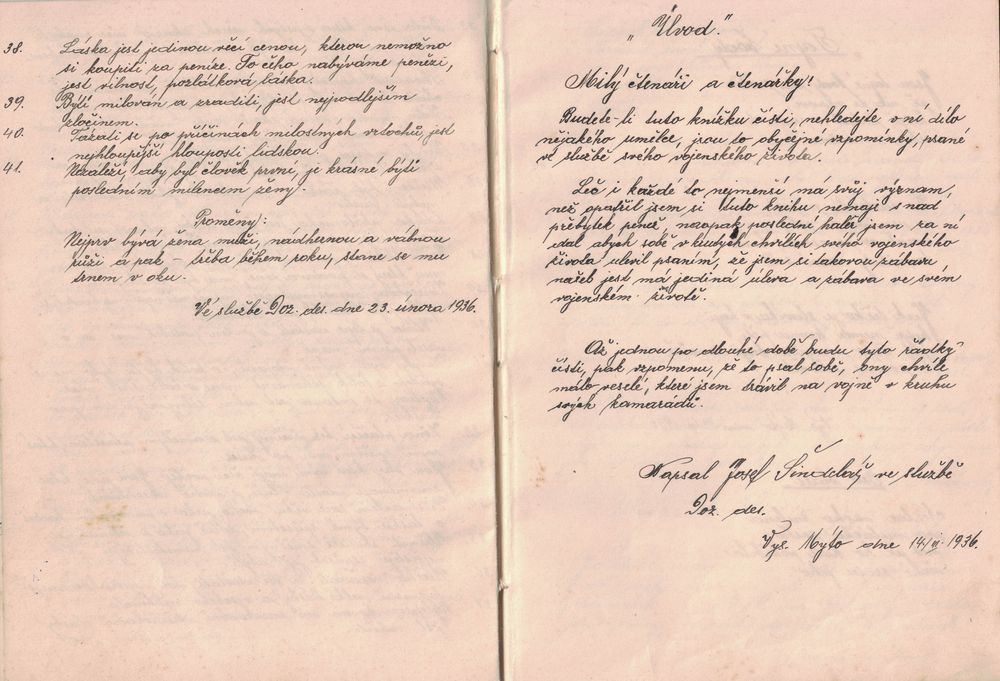 38. Láska jest jedinou věcí cenou, kterou nemožno
si koupiti za peníze. To čeho nabýváme penězi,
jest vilnost, pozlátková láska.
39. Býti milován a zraditi, jest nejpodlejším
zločinem.
40. Tázati se po příčinách milostných vrtochů, jest
nejhloupější hloupostí lidskou.
41. Nezáleží, aby byl člověk první, je krásné býti
posledním milencem ženy.
Proměny:
Nejprv bývá žena muži, nádhernou a vábnou
růží a pak - třeba během roku, stane se mu
trnem v oku.
Ve službě Doz. des. dne 23. února 1936.
„Úvod."
Milý čtenáři a čtenářky!
Budete-li tuto knížku čísti, nehledejte v ní dílo
nějakého umělce, jsou to obyčejné vzpomínky, psané
ve službě svého vojenského života.
Leč i každé to nejmenší má svůj význam,
než opatřil jsem si tuto knihu nemaje snad
přebytek peněz, naopak poslední haléř jsem za ní
dal abych sobě v krutých chvílích svého vojenského
života ulevil psaním, že jsem si takovou zábavu
našel jest má jediná úleva a zábava ve svém
vojenském životě.
Až jednou po dlouhé době budu tyto řádky
čísti, pak vzpomenu, že to psal sobě, ony chvíle
málo veselé, které jsem trávil na vojně v kruhu
svých kamarádů.
Napsal Josef Šindelář ve službě
Doz. des.
Vys. Mýto dne 14/II. 1936.